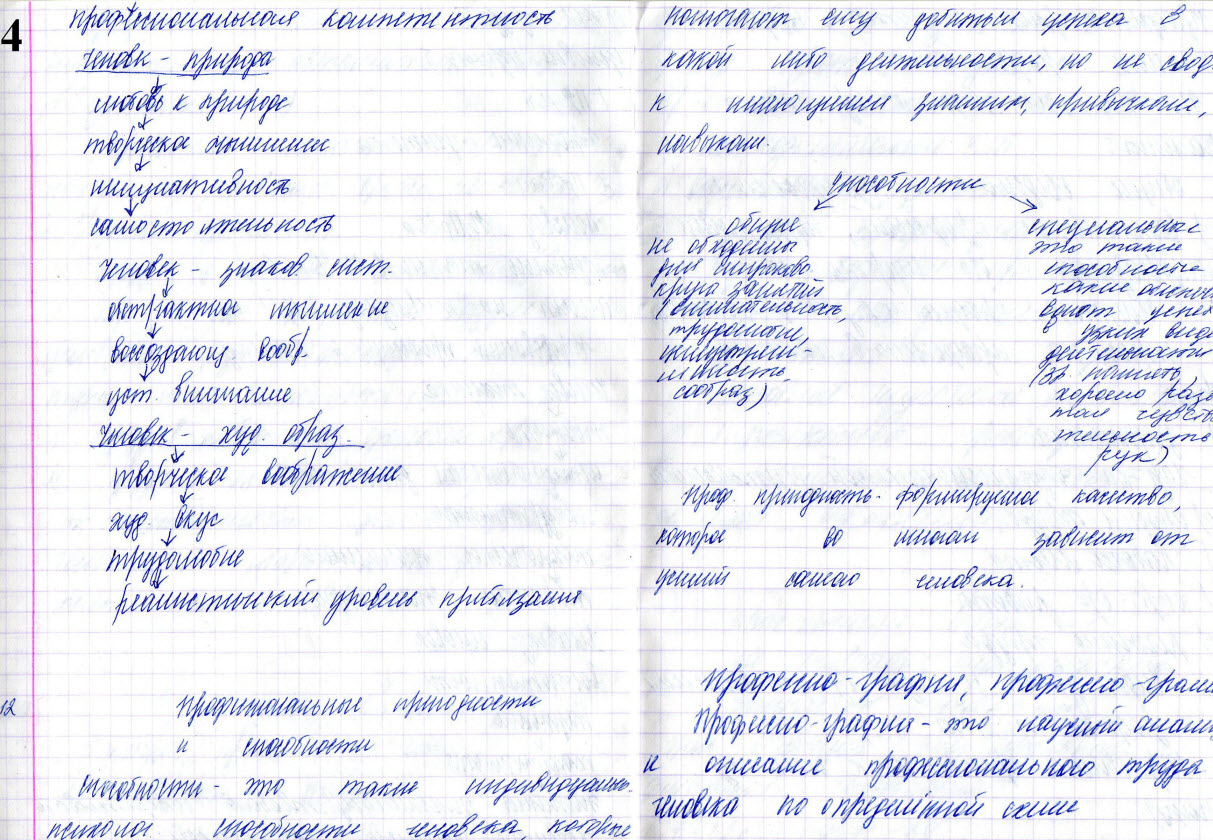 4
профессиональная компетентность
Человек - природа
любовь к природе
творческое мышление
инициативность
самостоятельность
Человек - знаков. сист.
абстрактное мышление
воссоздающ. вообр.
уст. внимание
Человек - худ. образ.
творческое воображение
худ. вкус
трудолюбие
реалистический уровень притязания
12
Профессиональные пригодности
и способности
Способности - это такие индивидуально-
психолог. способности человека, которые
помогают ему добиться успеха в
какой либо деятельности, но не свод
к имеющимся знаниям, привычкам,
навыкам.
способности
общие
не обходимы
для широкого
круга занятий
(внимательность,
трудолюбие,
сообраз)
специальные
это такие
способности
какие обеспеч
вают успех
в узких вида
деятельности
(зр. память,
хорошо разв
тая чувств
тельность
рук)
Проф. пригодность - формируемое качество,
которое во многом зависит от
усилий самого человека.
Професио-графия, професио-грам
Професио-графия - это научный анализ
и описание профессионального труда
человека по определённой схеме